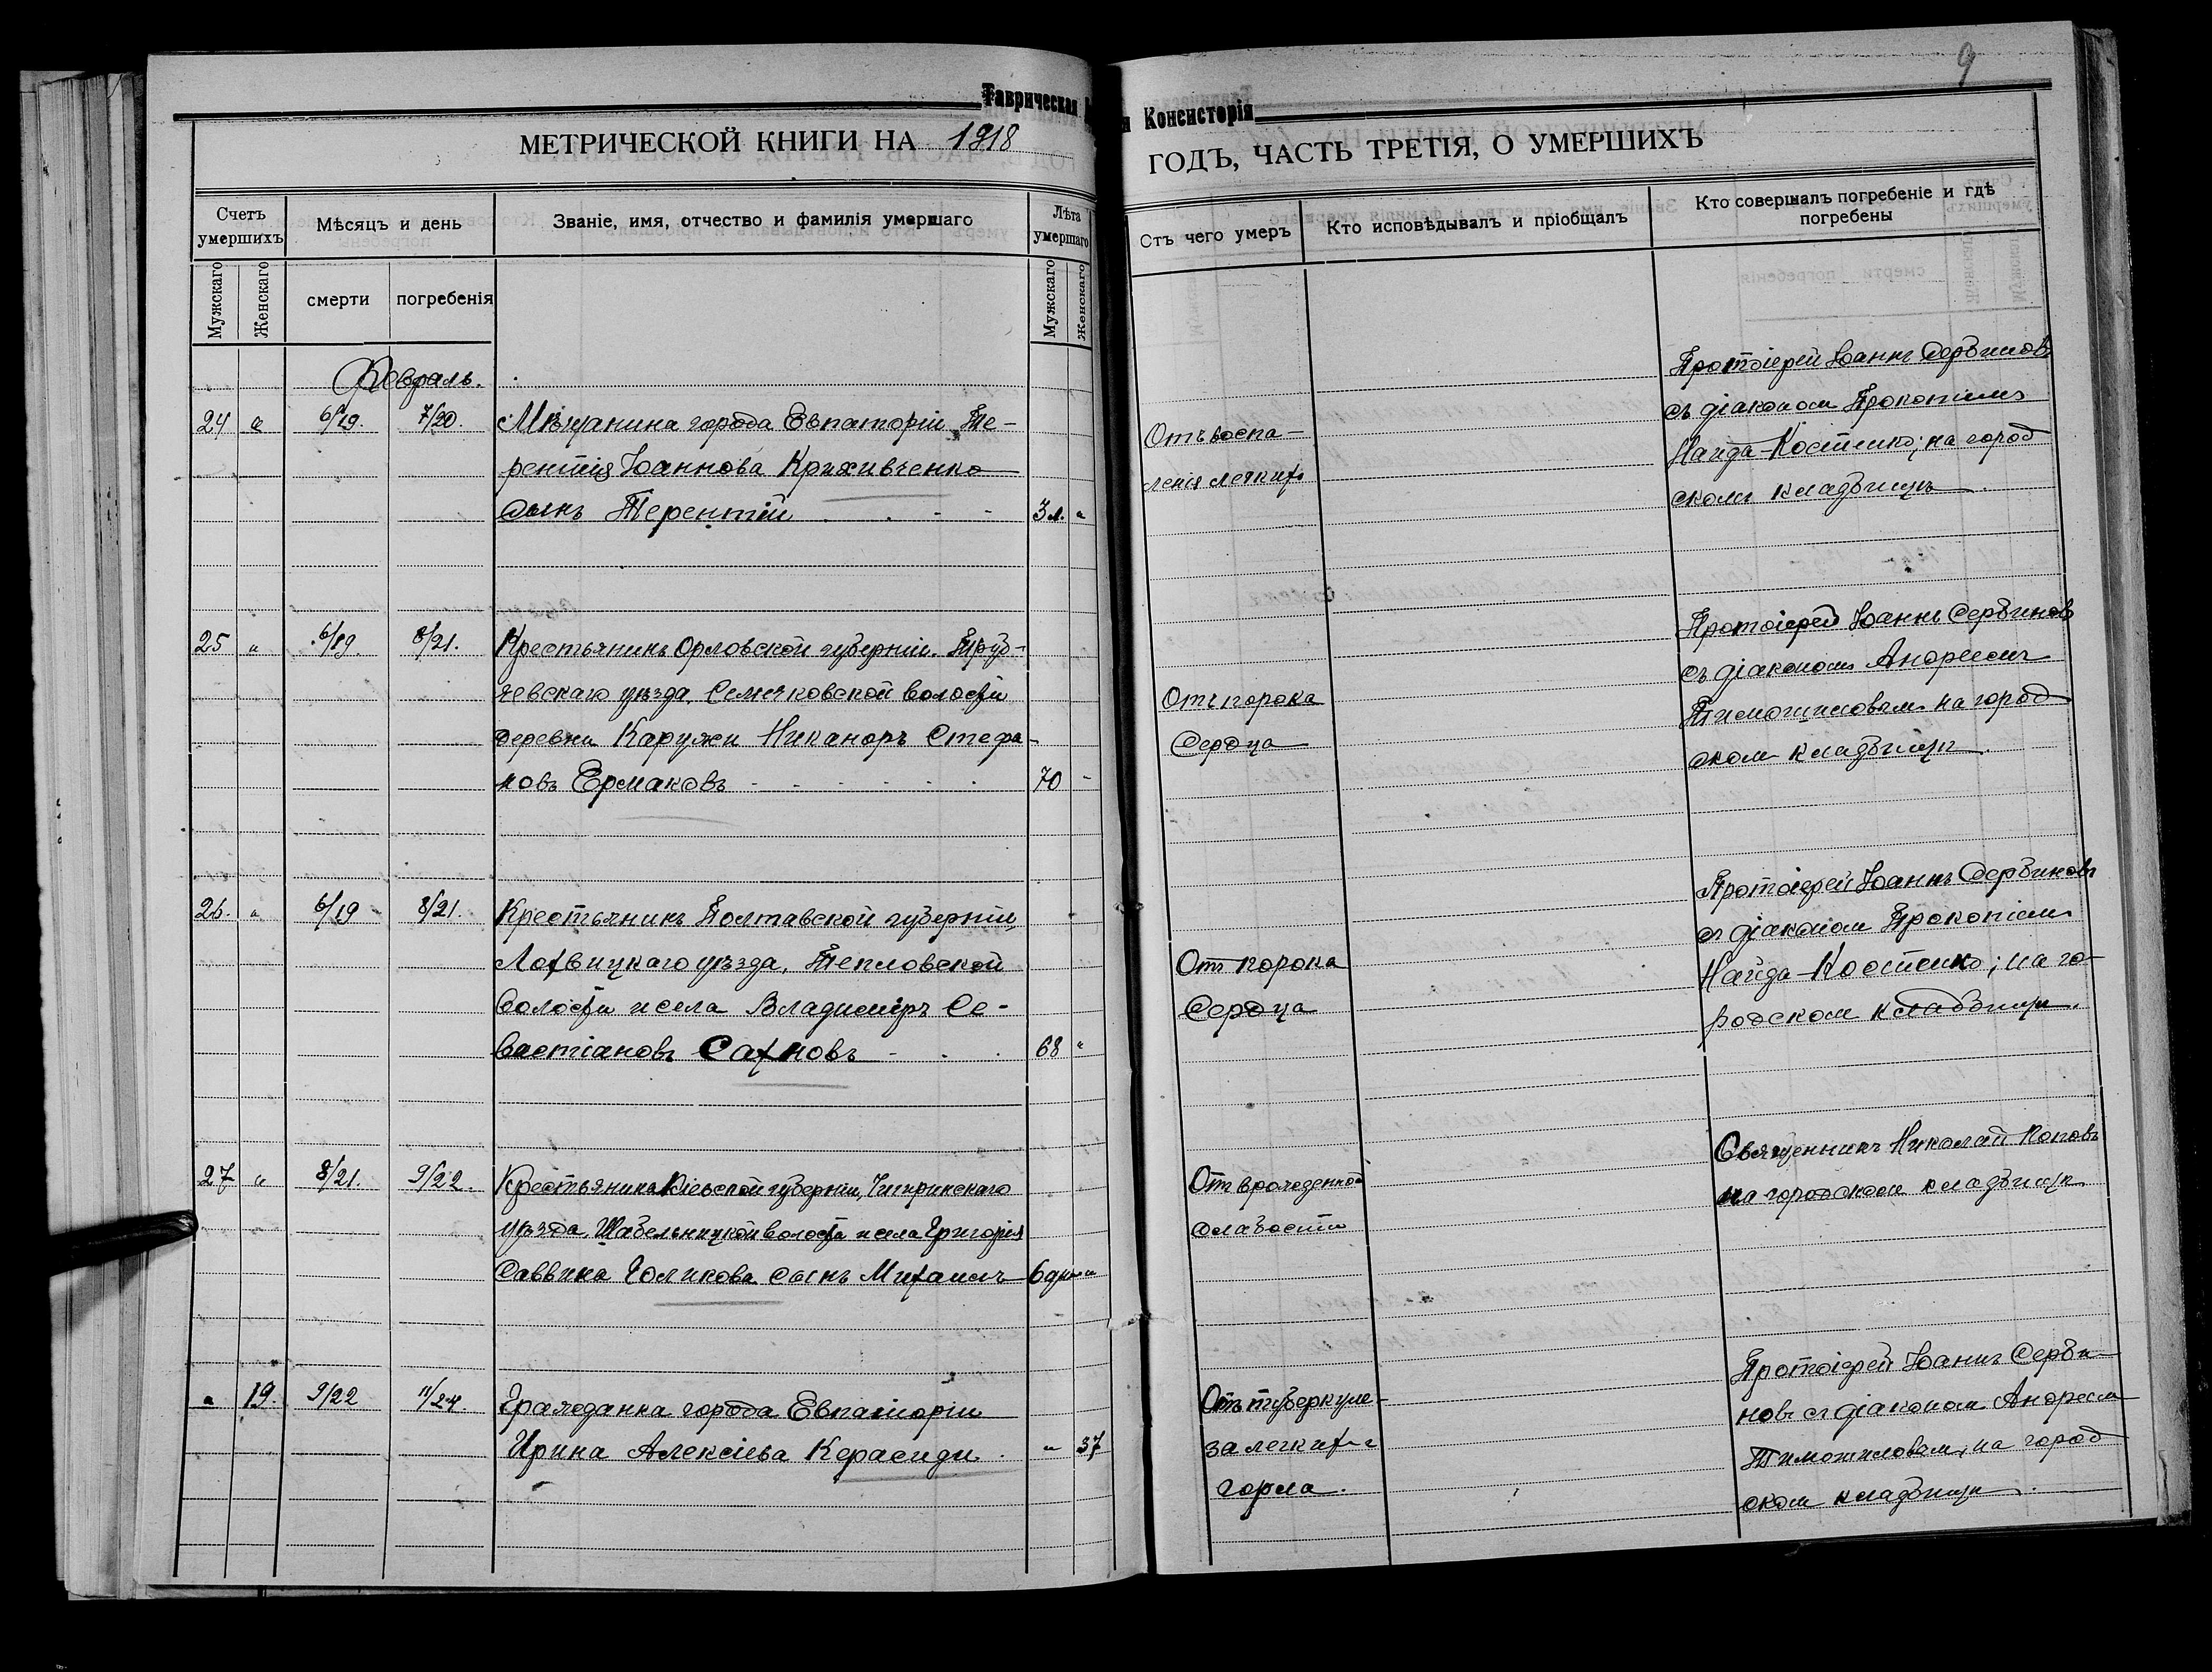 9
Таврическая
Консисторія
МЕТРИЧЕСКОЙ КНИГИ НА 1918
ГОДЪ, ЧАСТЬ ТРЕТІЯ, О УМЕРШИХЪ
Счетъ умершихъ
Мѣсяцъ и день
Званіе, имя, отчество и фамилія умершаго
Лѣта умершаго
Отъ чего умеръ
Кто исповѣдывалъ и пріобщалъ
Кто совершалъ погребеніе и гдѣ погребены
Мужскаго
Женскаго
смерти
погребенія
Мужскаго
Женскаго
Февраль.
24 " 6/19. 7/20. Мѣщанина города Евпаторіи Те-
рентія Іоаннова Криживченко
сынъ Терентій 3 л. "
Отъ воспа-
ленія легкихъ
Протоіерей Іоаннъ Сербиновъ
съ діакономъ Прокопіемъ
Найда-Костенко; на город
скомъ кладбищѣ.
25 " 6/19. 8/21. Крестьянинъ Орловской губерніи. Труб-
чевскаго уѣзда, Семячковской волости
деревни Каружи Никаноръ Стефа-
новъ Ермаковъ 70 "
Отъ порока
сердца
Протоіерей Іоаннъ Сербиновъ
съ діакономъ Андреемъ
Тимошиловымъ на город
скомъ кладбищѣ.
26. " 6/19 8/21. Крестьянинъ Полтавской губерніи,
Лохвицкаго уѣзда, Тепловской
волости и села Владиміръ Се-
вастіановъ Сахновъ 68 "
Отъ порока
сердца
Протоіерей Іоаннъ Сербиновъ
съ діакономъ Прокопіемъ
Найда-Костенко; на го-
родскомъ кладбищѣ.
27 " 8/21. 9/22. Крестьянина Кіевской губерніи, Чигиринскаго
уѣзда, Шабельницкой волости и села Григорія
Саввина Голикова сынъ Михаилъ 6 дн. "
Отъ врожденной
слабости
Священникъ Николай Поповъ
на городскомъ кладбищѣ
" 19. 9/22 11/24. Гражданка города Евпаторіи
Ирина Алексіева Керасиди. " 37
Отъ туберкуле-
за легкихъ и
горла.
Протоіерей Іоаннъ Серби-
новъ съ діакономъ Андреемъ
Тимошиловымъ, на город
скомъ кладбищѣ.